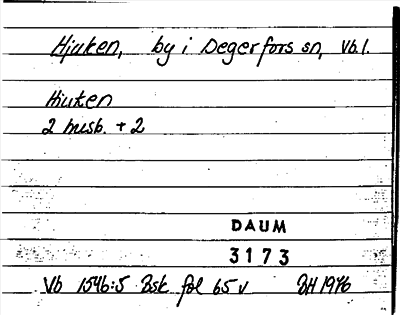 Hjuken, by i Degerfors sn, Vb.l.
Hiuken
2 husb. + 2
DAUM
3173
Vb 1546:5 Bsk fol 65 v BH 1976